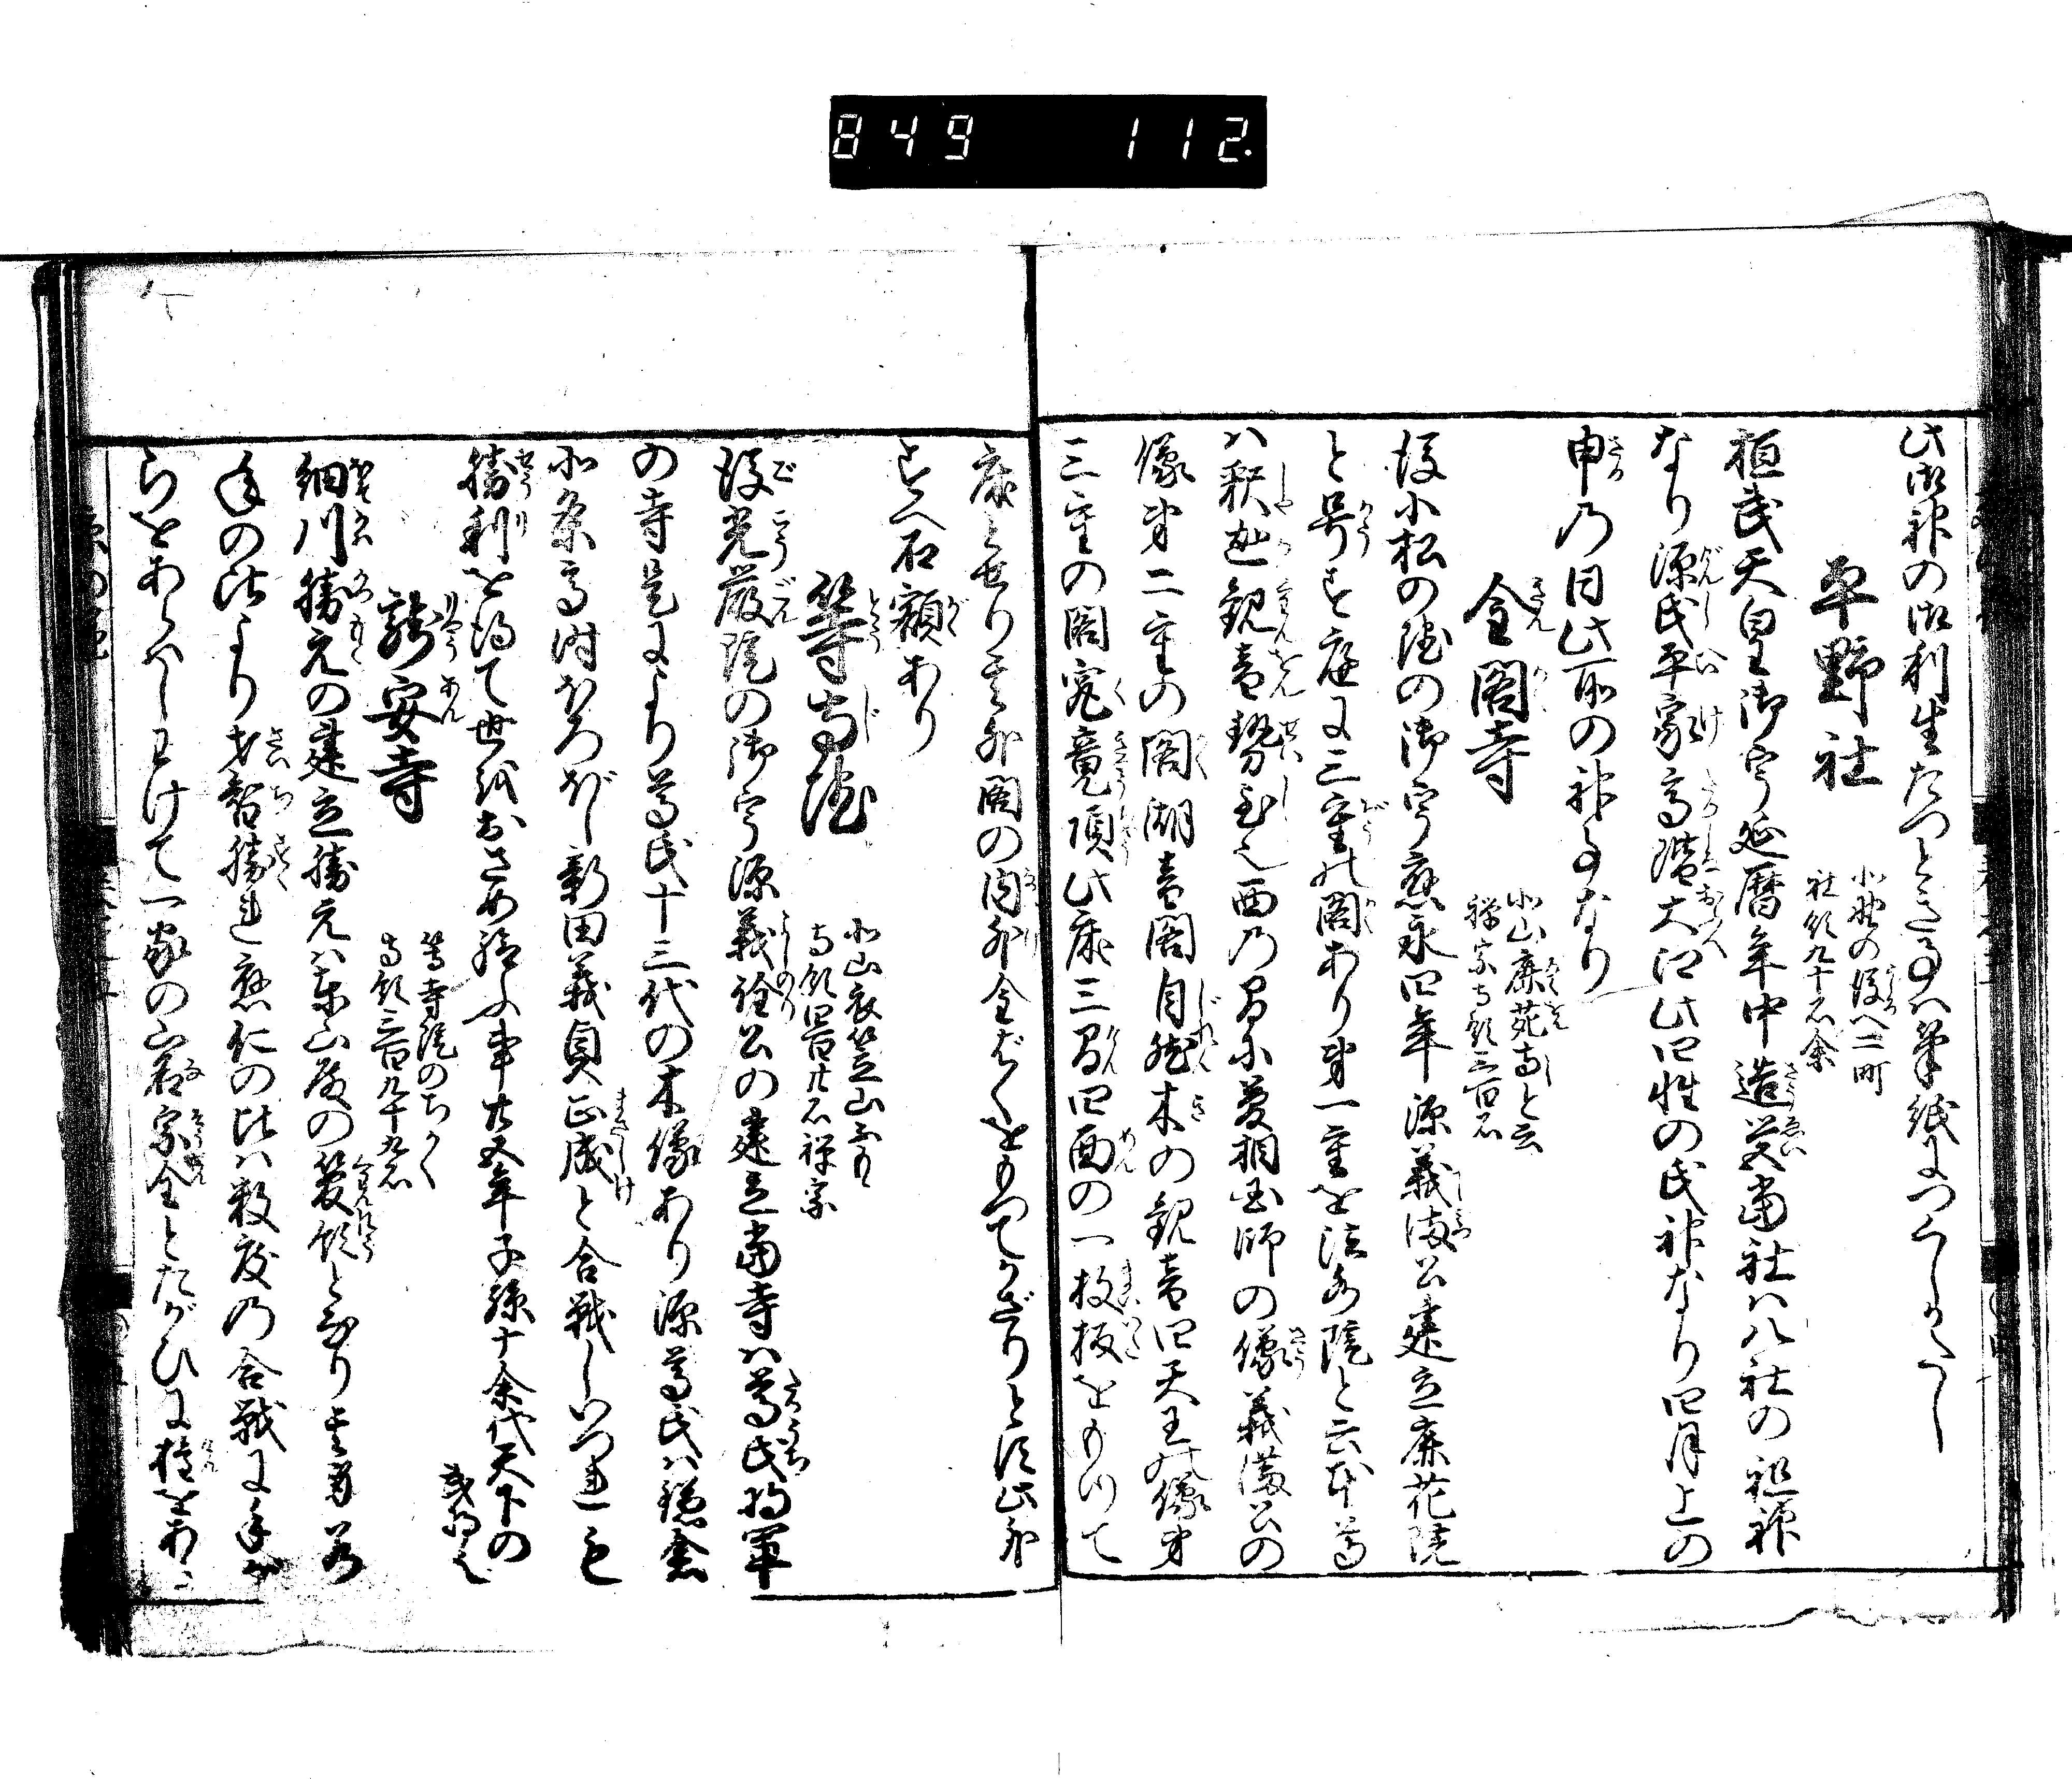 849 112.
此御神の御利生たつとき事ハ筆紙につくしかたし
平野社
北野の後へ二町
社領九十石余
桓武天皇御宇延暦年中造営当社ハ八社の祖神
なり源氏平家高階大江此四姓の氏神なり四月上の
申乃日此所の神事なり
金閣寺
北山鹿苑寺と云
禅宗寺領三百石
後小松の院の御宇応永四年源義満公建立鹿苑院
と号す庭に三重の閣あり第一重を法水院と云本尊
ハ釈迦観音勢至也西乃間に夢相国師の像義満公の
像第二重の閣潮音閣自然木の観音四天王の像第
三重の閣究竟頂此床三間四面の一枚板をもつて
床とせり其外閣の内外金ばくをもつてかざりとす此所
すへ石額あり
等持院
北山衣笠山ふもと
寺領四百廿石禅宗
後光厳院の御宇源義詮公の建立当寺ハ尊氏将軍
の寺是より尊氏十三代の木像あり源尊氏ハ鎌倉
北条高時ほろびし新田義貞正成と合戦しいつれも
勝利を得て世をおさめ給ふ事廿五年子孫十余代天下の
武将也
龍安寺
等持院のちかく
寺領三百九十九石
細川勝元の建立勝元ハ東山殿の管領となり其身若
年の比より才智勝れ応仁の比ハ数度乃合戦に手が
らをあらハしわけて一家の山名宗全とたがひに権をあ